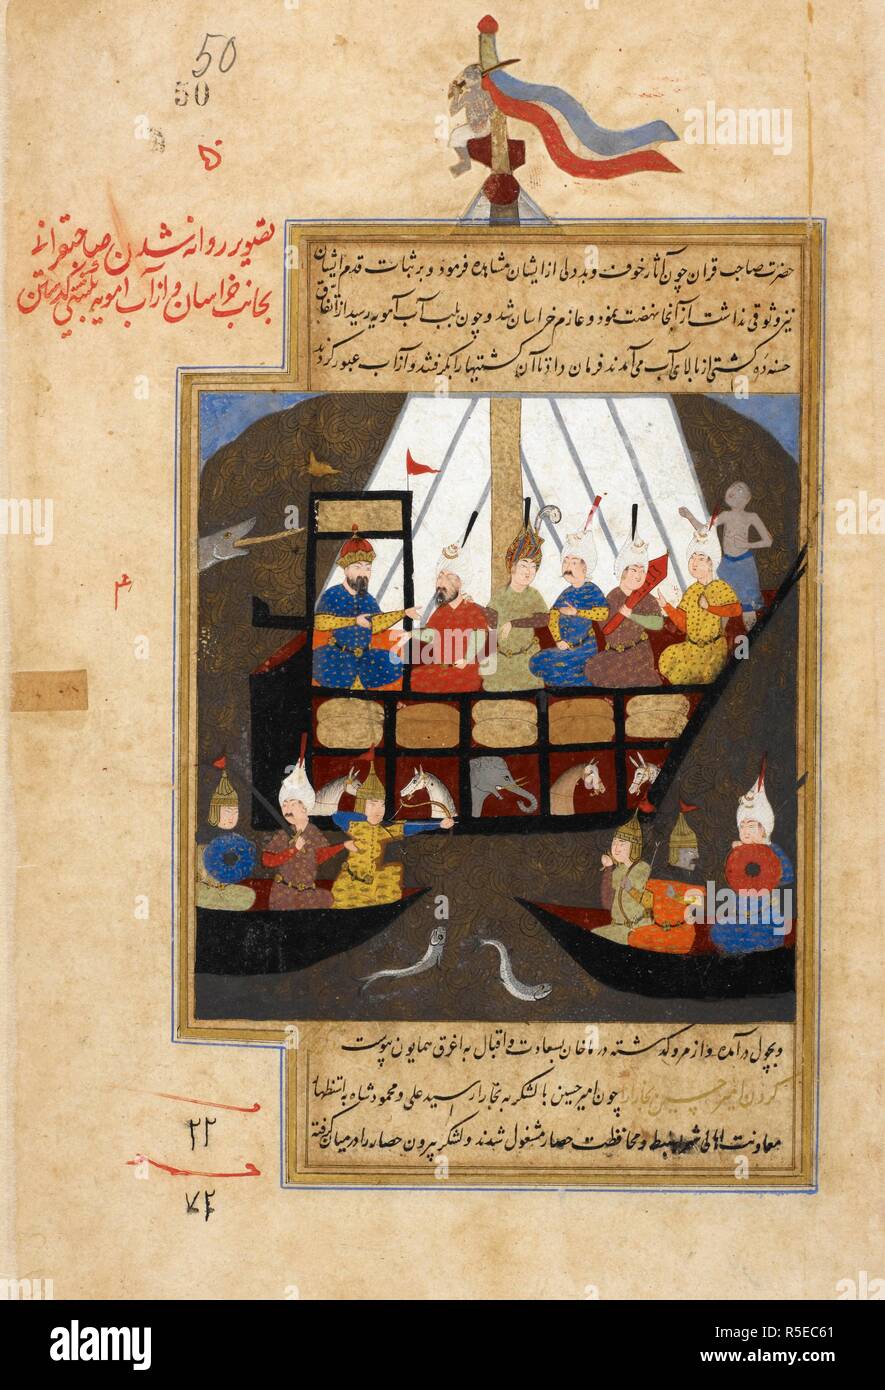 50
50
تصویر روانه شدن صاحبقرانی
بجانب خراسان و از آب امویه بکشتی گذشتن
حضرت صاحب قران چون آثار خوف و بددلی از ایشان مشاهده فرمود و بر ثبات قدم ایشان
نیز وثوقی نداشت از آنجا نهضت نمود و عازم خراسان شد و چون بلب آب آمویه رسید از اتفاق
حسنه ده کشتی از بالای آب می آمدند فرمان داد تا آن کشتیها را بگرفتند و از آب عبور کردند
و بچول درآمده و از مرو گذشته در ماخان بسعادت و اقبال به اغرق همایون پیوست
کردن امیر حسین بخارا را چون امیر حسین با لشکر به بخارا رسید علی و محمود شاه به استظهار
معاونت اهالی شهر بضبط و محافظت حصار مشغول شدند و لشکر بیرون حصار را در میان گرفته
۲۲
۷۲
alamy
alamy stock photo
Image ID: R5EC61
www.alamy.com